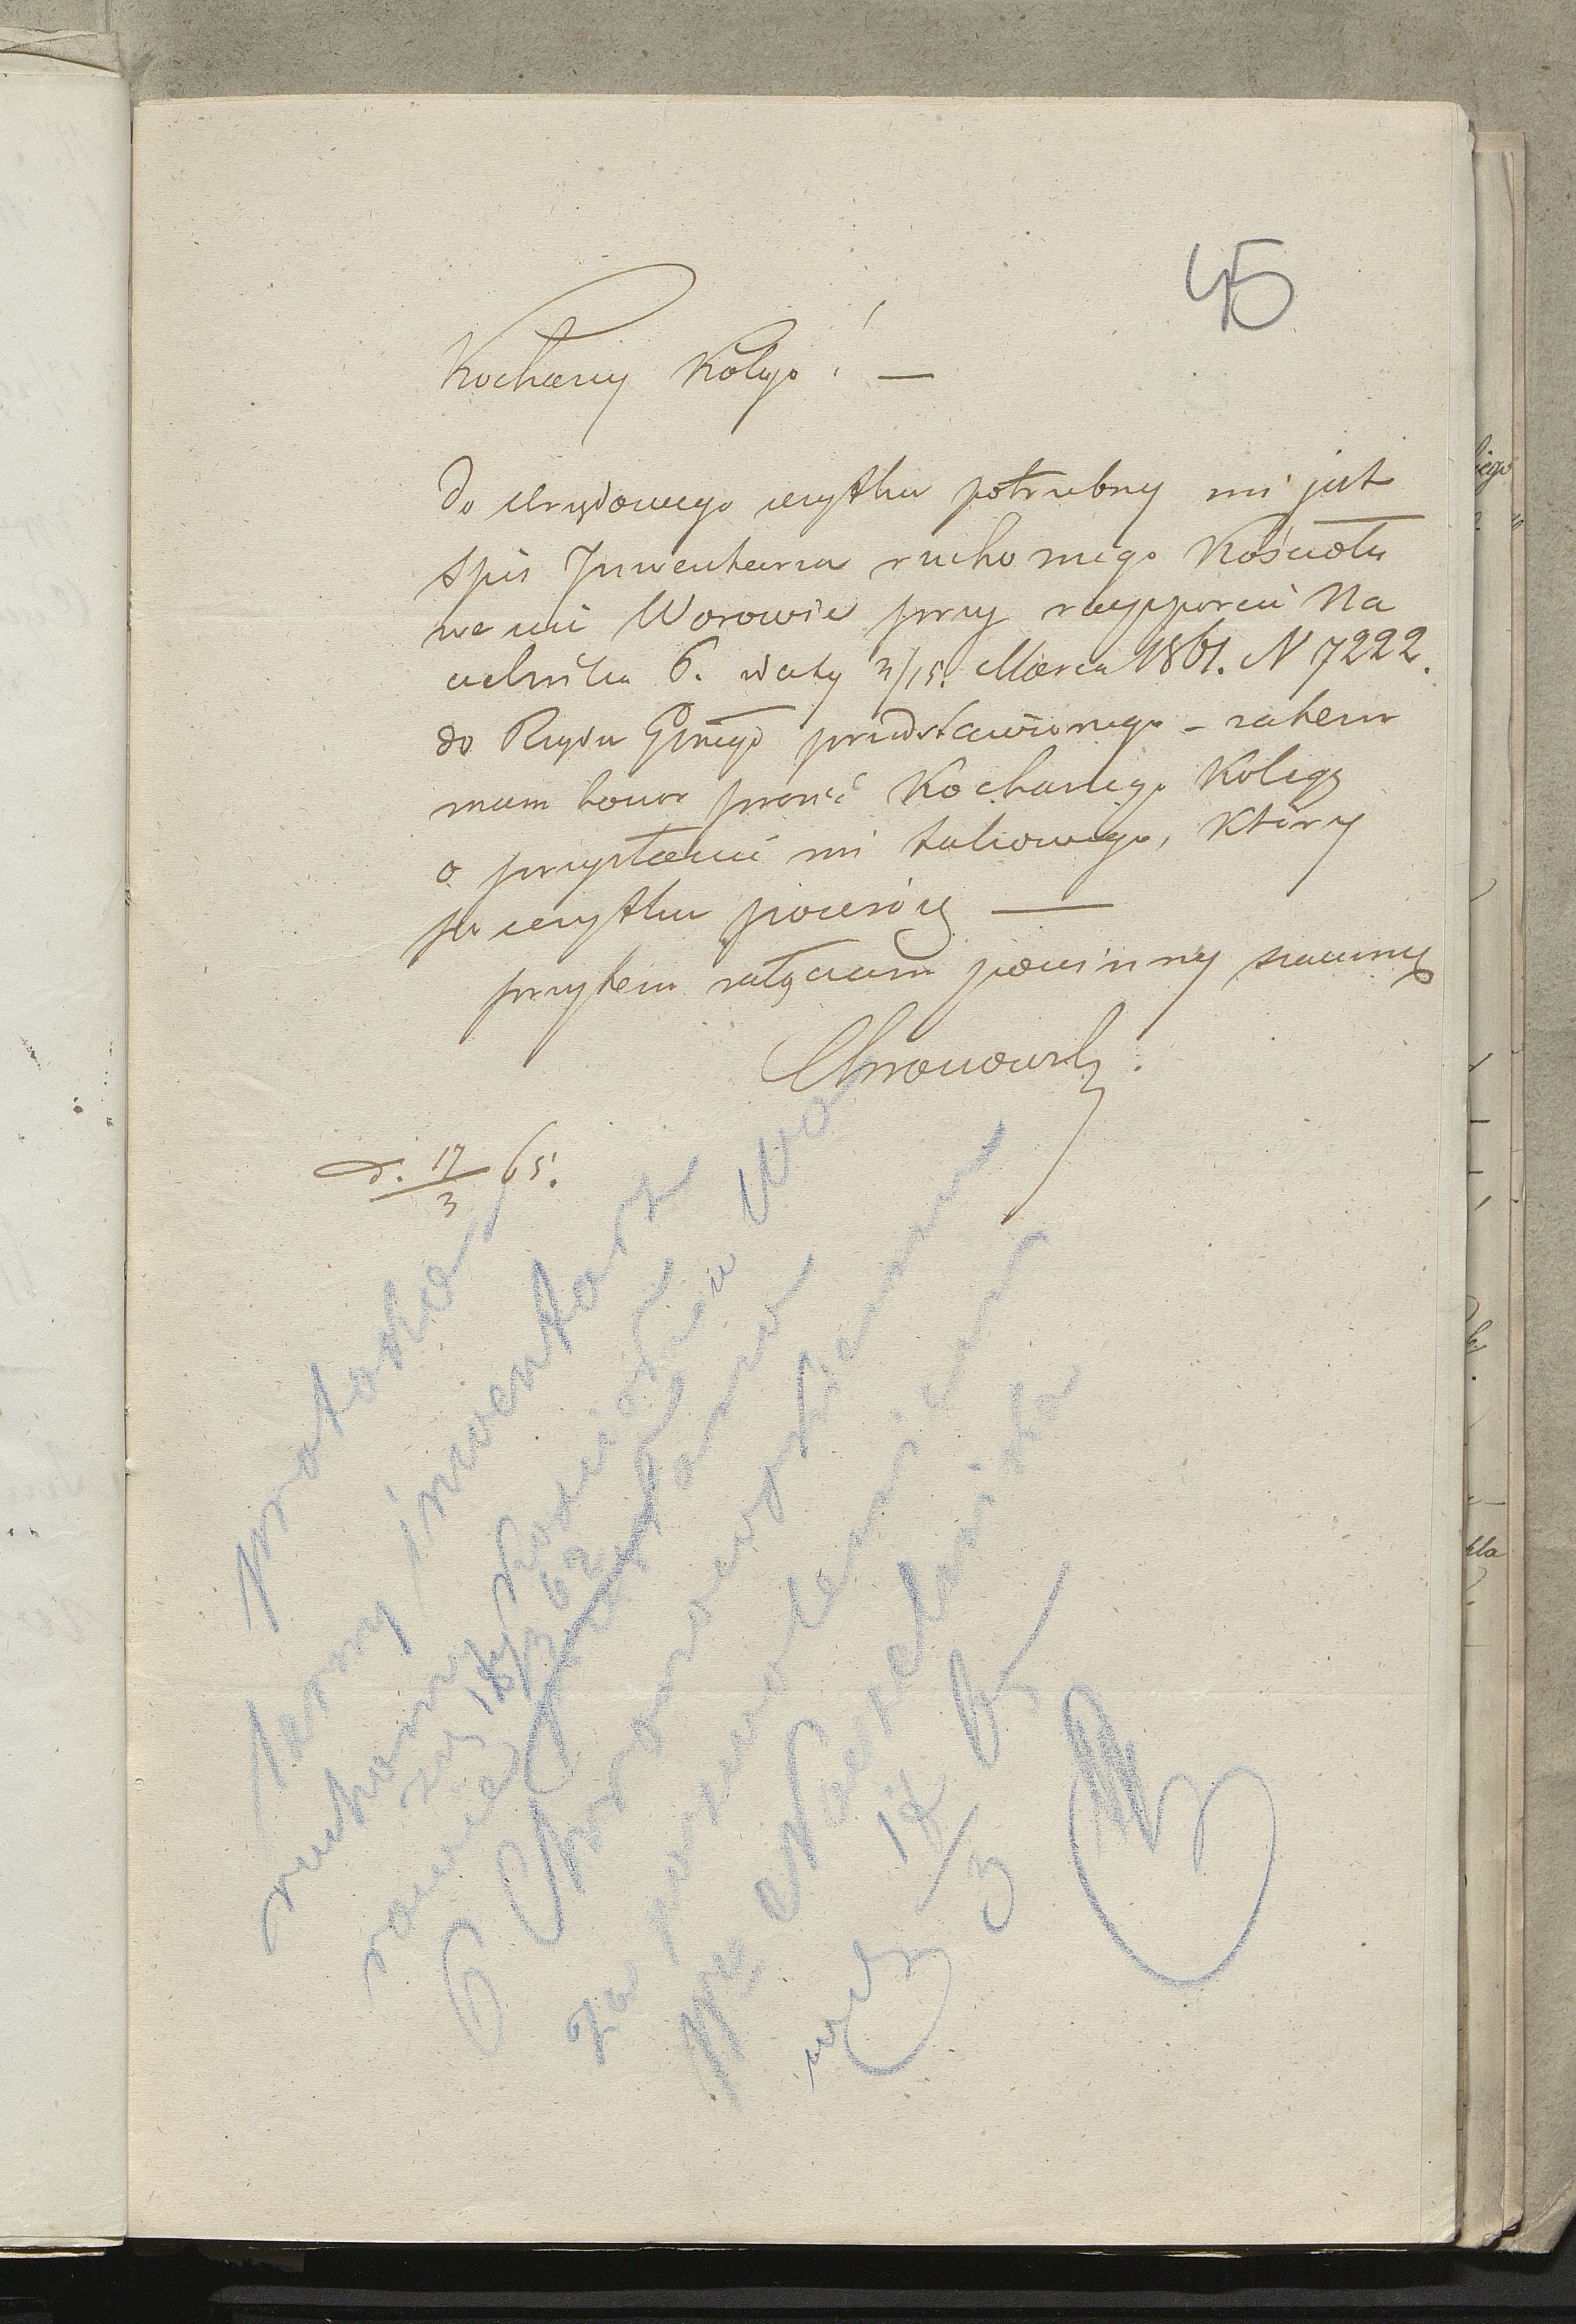 45
Kochany Kolego! —
Do urzędowego użytku potrzebny mi jest
spis Inwentarza ruchomego Kościoła
we wsi Worowie przy rapporcie Na
czelnika P. daty 3/15. Marca 1861. N 7222.
do Rządu Gnego przedstawionego – zatem
mam honor prosić Kochanego Kolegę
o przysłanie mi takowego, który
po użytku powrócę —
przytem załączam powinny szacunek
Chronowski.
d. 17/3 65.
inwentarz
ruchomy Kościoła w Wo
rowie
P Chronowskiemu
za pozwoleniem
Wo Naczelnika
17/3 65